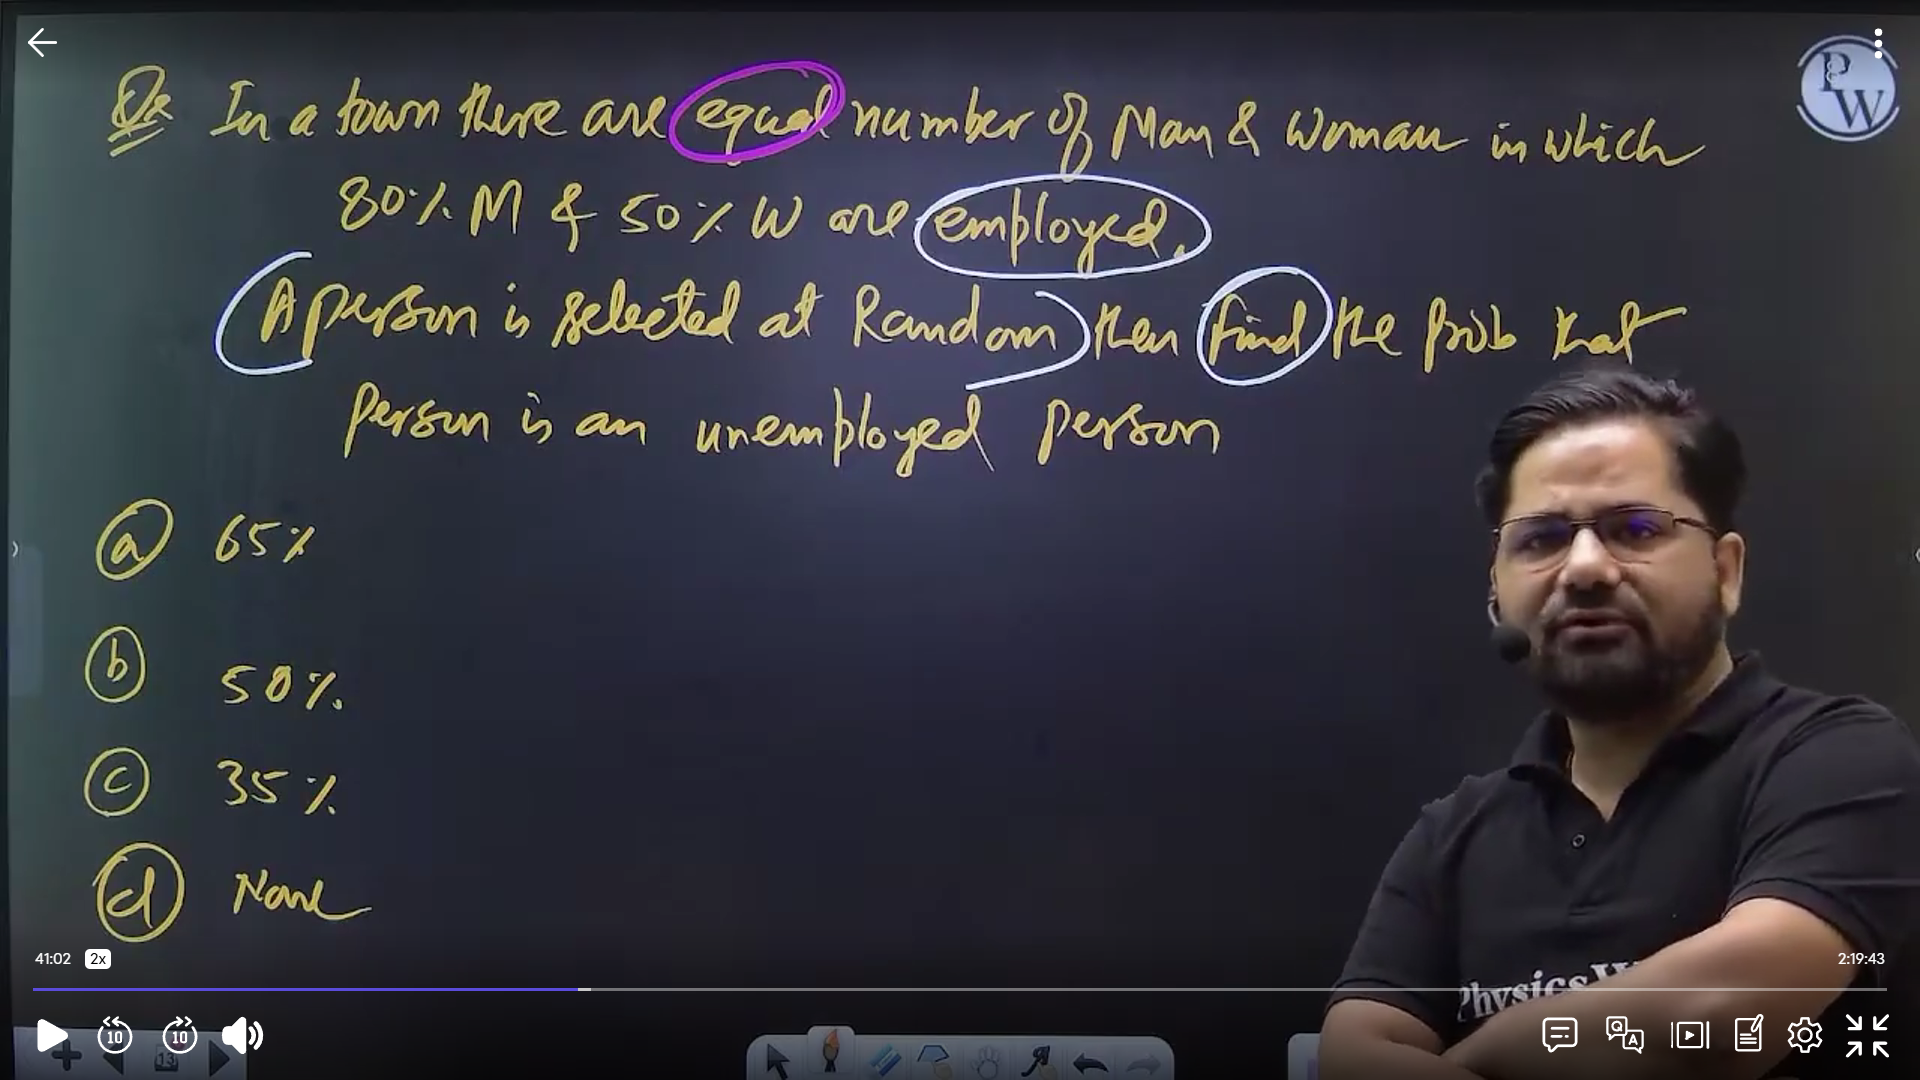 Qx In a town there are equal number of Man & Woman in which
80% M & 50% W are employed.
A person is selected at Random then find the prob that
person is an unemployed person
a 65%
b 50%.
c 35%
d None
PW
Physics W
41:02 2x
2:19:43
10 10
13